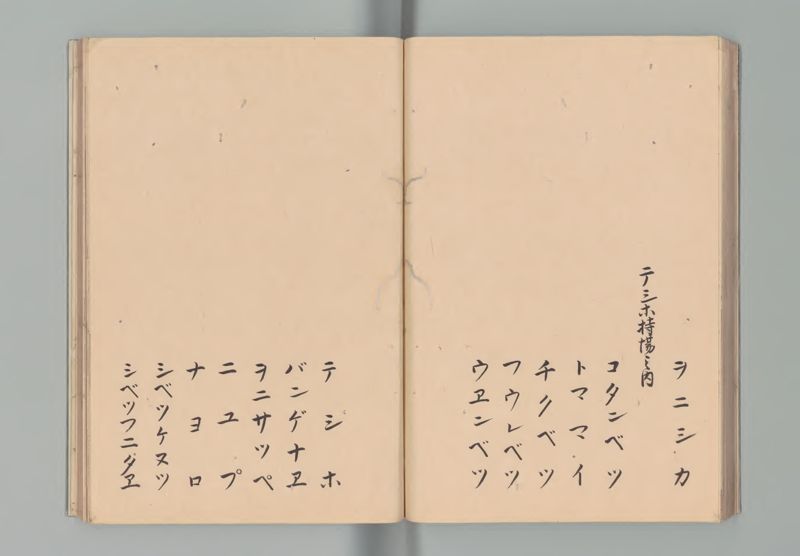 ヲニシカ
テシホ持場之内
コタンベツ
トママイ
チクベツ
フウレベツ
ウヱンベツ
テシホ
バンゲナヱ
ヲニサツペ
ニユプ
ナヨロ
シベツケヌツ
シベツフニダヱ